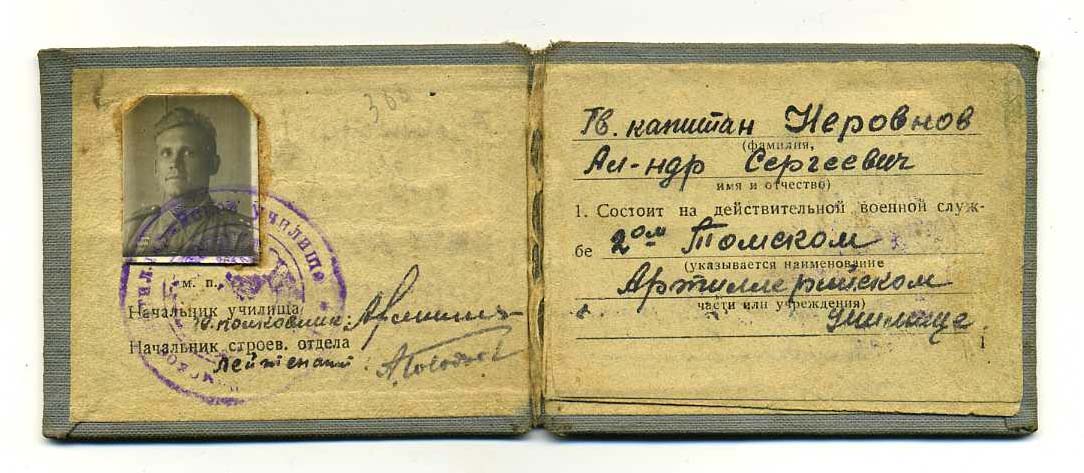 300
м. п.
Начальник училища
п/полковник:
Начальник строев. отдела
лейтенант
Гв. капитан Неровнов
(фамилия,
Ал-ндр Сергеевич
имя и отчество)
1. Состоит на действительной военной служ-
бе 2ом Томском
(указывается наименование
Артиллерийском
части или учреждения)
училище.
1